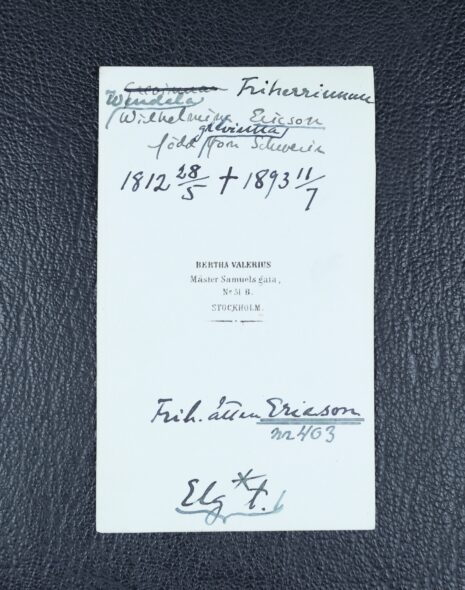 Grevinnan Friherrinnan
Wendela
(Wilhelmina Ericson
grevinna
född von Schwerin
1812 28/5 † 1893 11/7
BERTHA VALERIUS
Mäster Samuels gata,
No 51 B.
STOCKHOLM.
Frih. ätten Ericson
nr 403
Elg * t.